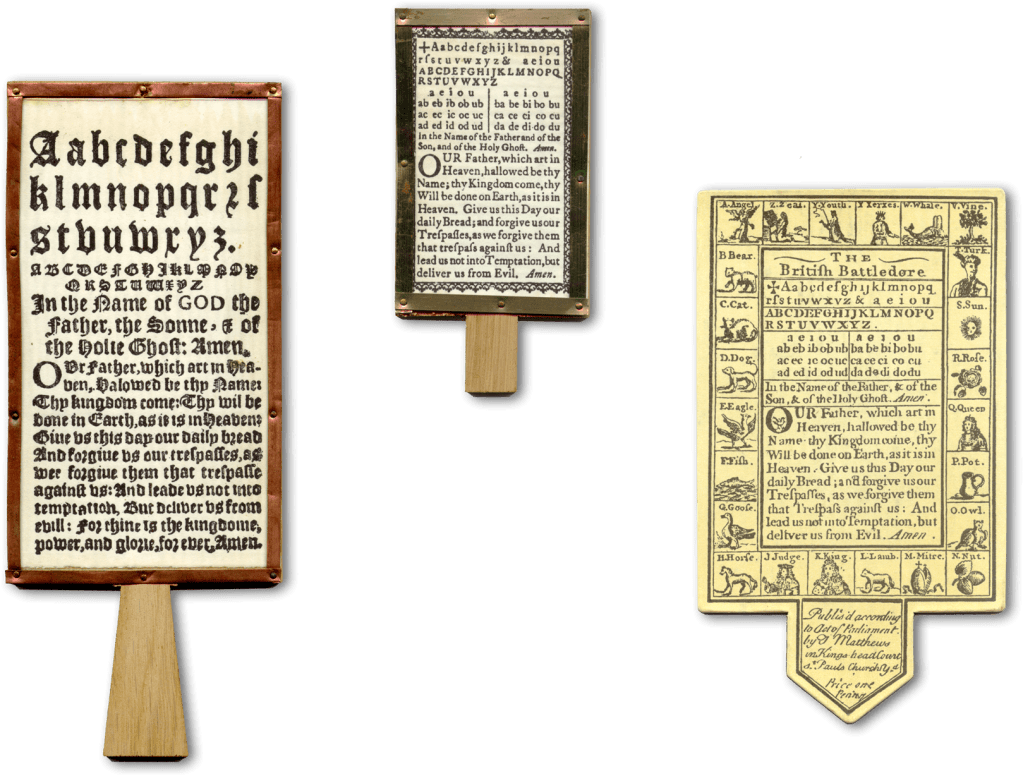 Aabcdefghi
klmnopqrꝛſ
stvuwxyz.
ABCDEFGHIJKLMNOP
QRSTUWXYZ
In the Name of GOD the
Father, the Sonne, & of
the Holie Ghoſt: Amen.
OVr Father, which art in Hea-
ven, Halowed be thy Name:
Thy kingdom come: Thy wil be
done in Earth, as it is in Heaven:
Giue vs this day our daily bread
And forgiue vs our treſpaſſes, as
wee forgiue them that treſpaſſe
againſt vs: And leade vs not into
temptation, But deliver vs from
evill: For thine is the kingdome,
power, and glorie, for ever, Amen.
✢Aabcdefghijklmnopq
rſstuvwxyz& aeiou
ABCDEFGHIJKLMNOPQ
RSTUVWXYZ
a e i o u a e i o u
ab eb ib ob ub ba be bi bo bu
ac ec ic oc uc ca ce ci co cu
ad ed id od ud da de di do du
In the Name of the Father and of the
Son, and of the Holy Ghoſt. Amen.
OUR Father, which art in
Heaven, hallowed be thy
Name; thy Kingdom come, thy
Will be done on Earth, as it is in
Heaven. Give us this Day our
daily Bread; and forgive us our
Treſpaſſes, as we forgive them
that treſpaſs againſt us: And
lead us not into Temptation, but
deliver us from Evil. Amen.
A.Angel. Z.Zeal. Y.Youth. X Xerxes. W.Whale. V.Vine.
B Bear.
C.Cat.
D.Dog.
E.Eagle.
F.Fiſh.
G.Gooſe.
H.Horſe. J Judge. K.King. L.Lamb. M.Mitre. N.Nut.
T.Turk.
S.Sun.
R.Roſe.
Q.Queen
P.Pot.
O.Owl.
THE
Britiſh Battledore
✢Aabcdefghijklmnopq
rſstuvwxyz& aeiou
ABCDEFGHIJKLMNOPQ
RSTUVWXYZ.
a e i o u a e i o u
ab eb ib ob ub ba be bi bo bu
ac ec ic oc uc ca ce ci co cu
ad ed id od ud da de di do du
In the Name of the Father, & of the
Son, & of the Holy Ghoſt. Amen.
OUR Father, which art in
Heaven, hallowed be thy
Name thy Kingdom come, thy
Will be done on Earth, as it is in
Heaven. Give us this Day our
daily Bread; and forgive us our
Treſpaſſes, as we forgive them
that Treſpaſs againſt us: And
lead us not into Temptation, but
deliver us from Evil. Amen.
Publis'd according
to Act of Parliament
by J Matthews
in Kings-head Court
St. Pauls Churchyd
Price one
Penny